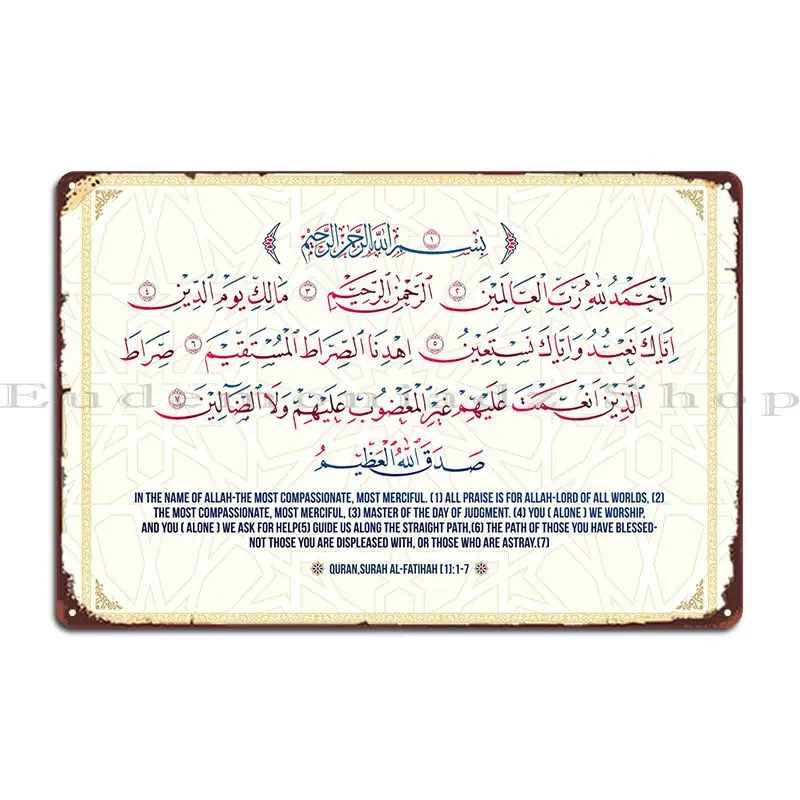 بِسْمِ اللَّهِ الرَّحْمَٰنِ الرَّحِيمِ ١
الْحَمْدُ لِلَّهِ رَبِّ الْعَالَمِينَ ٢ الرَّحْمَٰنِ الرَّحِيمِ ٣ مَالِكِ يَوْمِ الدِّينِ ٤
إِيَّاكَ نَعْبُدُ وَإِيَّاكَ نَسْتَعِينُ ٥ اهْدِنَا الصِّرَاطَ الْمُسْتَقِيمَ ٦ صِرَاطَ
الَّذِينَ أَنْعَمْتَ عَلَيْهِمْ غَيْرِ الْمَغْضُوبِ عَلَيْهِمْ وَلَا الضَّالِّينَ ٧
Eudemoniadz Shop
صَدَقَ اللَّهُ الْعَظِيمُ
IN THE NAME OF ALLAH-THE MOST COMPASSIONATE, MOST MERCIFUL. (1) ALL PRAISE IS FOR ALLAH-LORD OF ALL WORLDS, (2)
THE MOST COMPASSIONATE, MOST MERCIFUL, (3) MASTER OF THE DAY OF JUDGMENT. (4) YOU ( ALONE ) WE WORSHIP,
AND YOU ( ALONE ) WE ASK FOR HELP(5) GUIDE US ALONG THE STRAIGHT PATH,(6) THE PATH OF THOSE YOU HAVE BLESSED-
NOT THOSE YOU ARE DISPLEASED WITH, OR THOSE WHO ARE ASTRAY.(7)
QURAN,SURAH AL-FATIHAH (1):1-7